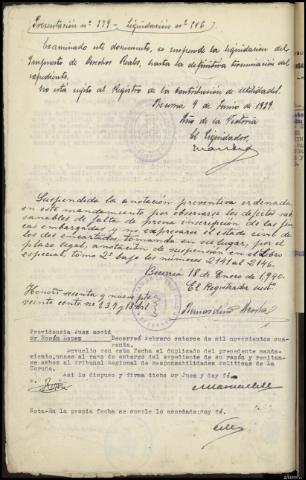 Presentación nº 379 - Liquidación nº 146
Examinado este documento, se suspende la liquidación del
Impuesto de Derechos Reales, hasta la definitiva terminación del
expediente.
No está sujeto al Registro de la Contribución de utilidades.
9 de Junio de 1939
Año de la Victoria
El Liquidador,
Suspendida la anotación preventiva ordenada
en este mandamiento por observarse los defectos sub
sanables de falta de previa inscripción de las fin
cas embargadas y no expresarse el estado civil de
los encartados, tomando en su lugar, por el
plazo legal, anotación de suspensión en el Libro
especial, tomo 2º bajo los números 2141 al 2146.
18 de Enero de 1940.
El Registrador
Honorarios y nueve pts
veinte cents nº
Providencia Juez accid
Becerreá febrero catorce de mil novecientos cua
renta.
Devuelto con esta fecha el duplicado del precedente manda-
miento, unase al ramo de embargo del expediente de su razón y remita-
se este al Tribunal Regional de Responsabilidades Políticas de La
Coruña.
Asi lo dispuso y firma dicho Sr Juez y doy fé.
Nota-En la propia fecha se cumple lo acordado; doy fé.